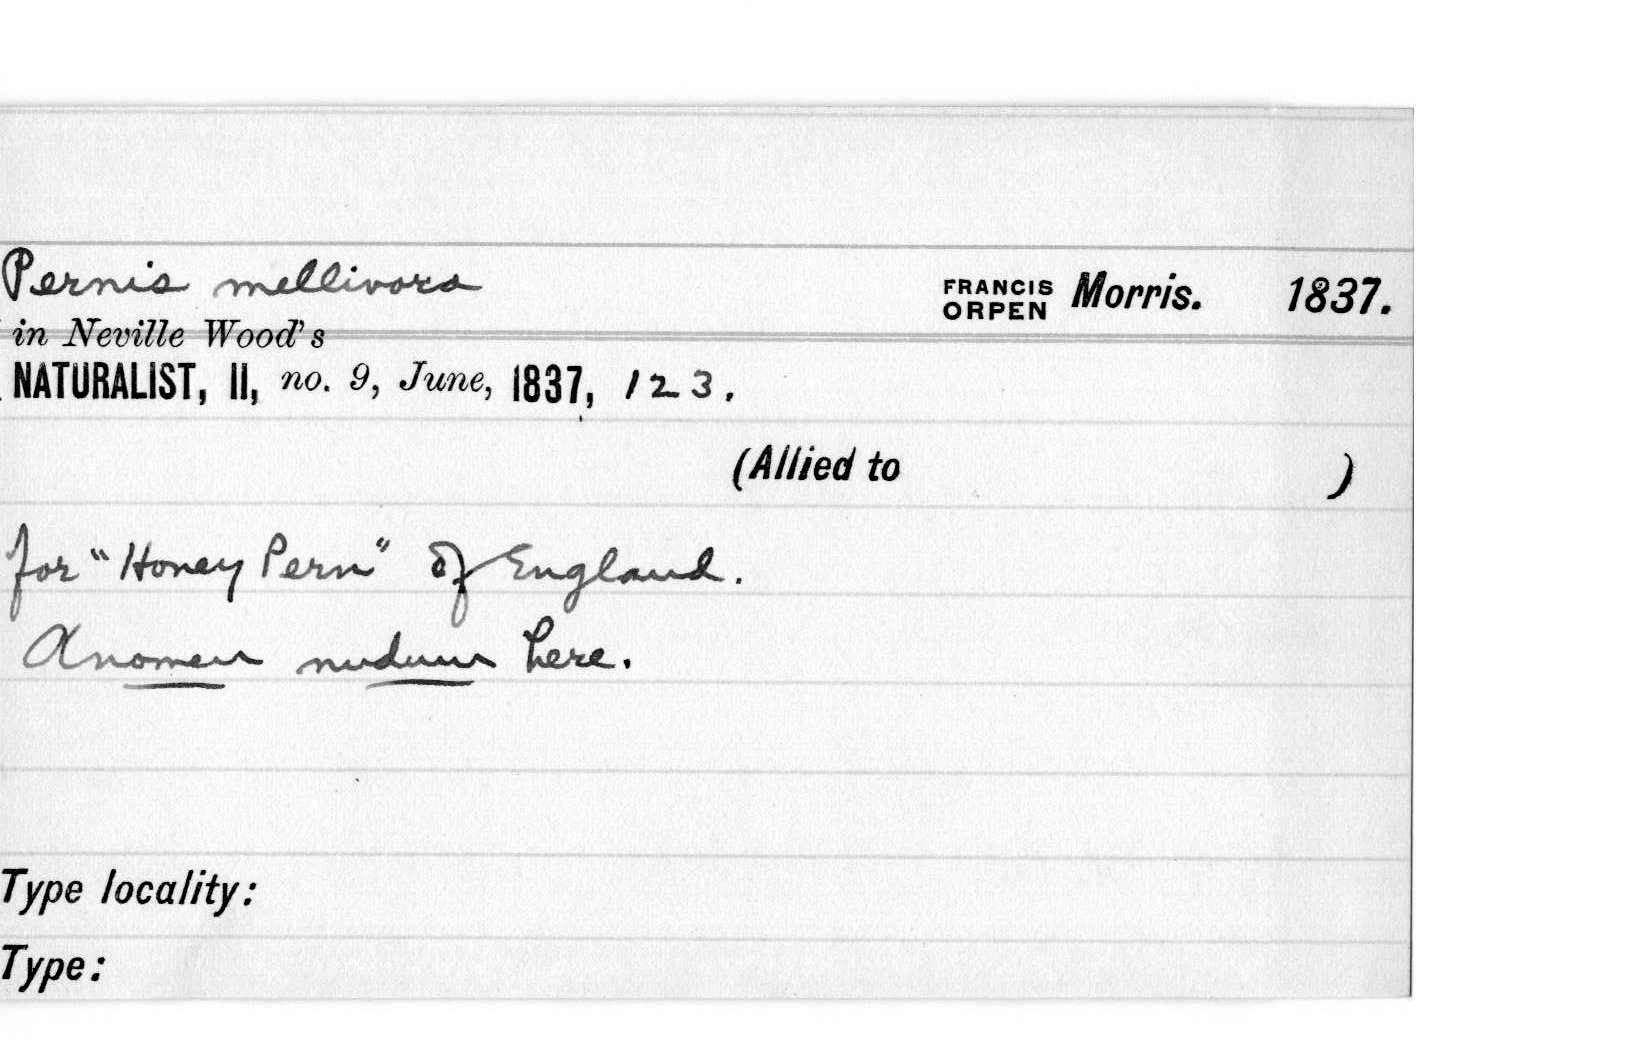 Pernis mellivora FRANCIS ORPEN Morris. 1837.
in Neville Wood's
NATURALIST, II, no. 9, June, 1837, 123.
(Allied to )
for "Honey Pern" of England.
A nomen nudum here.
Type locality:
Type: